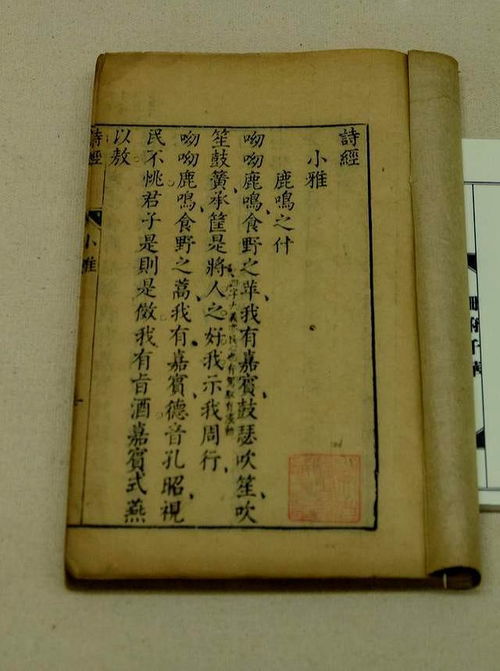 詩經
小雅
鹿鳴之什
呦呦鹿鳴食野之苹我有嘉賓鼓瑟吹笙吹
笙鼓簧承筐是將人之好我示我周行
呦呦鹿鳴食野之蒿我有嘉賓德音孔昭視
民不恌君子是則是傚我有旨酒嘉賓式燕
以敖
詩經
小雅